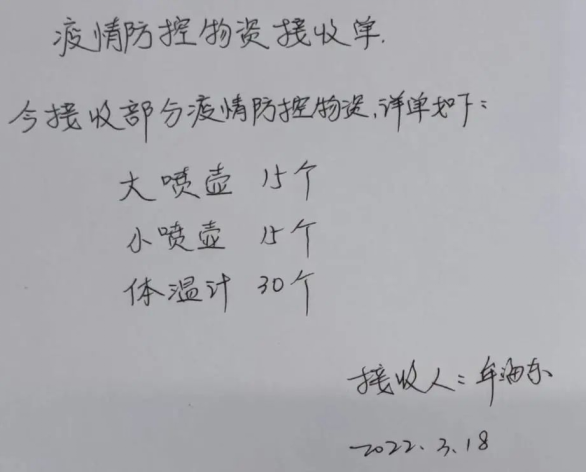 疫情防控物资接收单.
今接收部分疫情防控物资,详单如下:
大喷壶 15个
小喷壶 15个
体温计 30个
接收人: 牟海东
2022.3.18